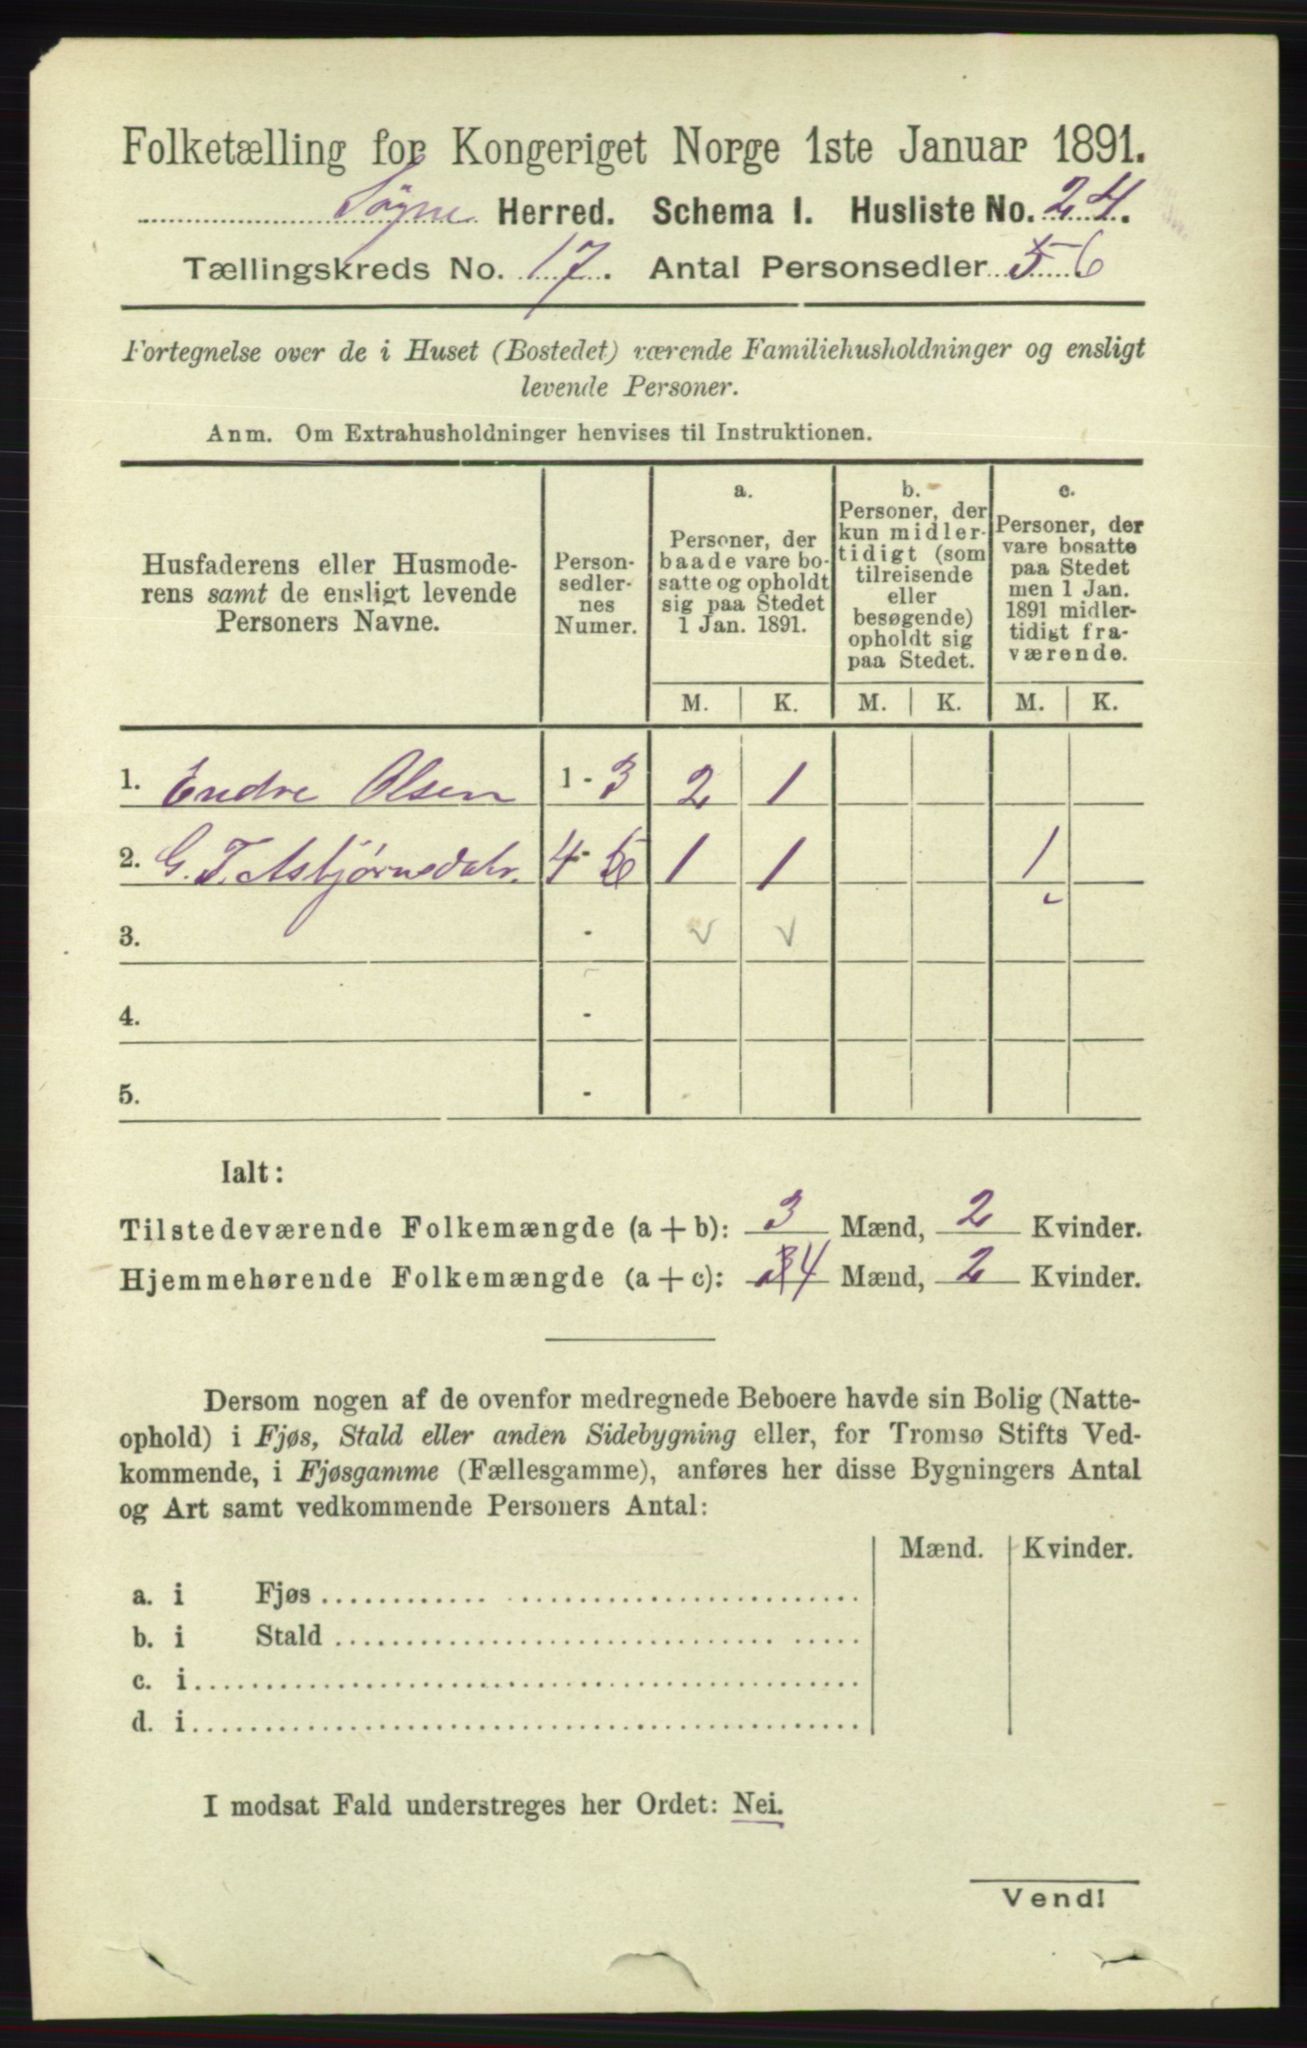 Folketælling for Kongeriget Norge 1ste Januar 1891.
Søgne Herred. Schema I. Husliste No. 24.
Tællingskreds No. 17. Antal Personsedler 5 6
Fortegnelse over de i Huset (Bostedet) værende Familiehusholdninger og ensligt
levende Personer.
Anm. Om Extrahusholdninger henvises til Instruktionen.
Husfaderens eller Husmode-
rens samt de ensligt levende
Personers Navne.
Person-
sedler-
nes
Numer.
a.
Personer, der
baade vare bo-
satte og opholdt
sig paa Stedet
1 Jan. 1891.
b.
Personer, der
kun midler-
tidigt (som
tilreisende
eller
besøgende)
opholdt sig
paa Stedet.
c.
Personer, der
vare bosatte
paa Stedet
men 1 Jan.
1891 midler-
tidigt fra-
værende.
M. K. M. K. M. K.
1. Endre Olsen 1 - 3 2 1
2. G. T. Asbjørnsdatr. 4 - 6 1 1 1
3. -
4. -
5. -
Ialt:
Tilstedeværende Folkemængde (a + b): 3 Mænd, 2 Kvinder.
Hjemmehørende Folkemængde (a + c): 3 4 Mænd, 2 Kvinder.
Dersom nogen af de ovenfor medregnede Beboere havde sin Bolig (Natte-
ophold) i Fjøs, Stald eller anden Sidebygning eller, for Tromsø Stifts Ved-
kommende, i Fjøsgamme (Fællesgamme), anføres her disse Bygningers Antal
og Art samt vedkommende Personers Antal:
Mænd. Kvinder.
a. i Fjøs
b. i Stald
c. i
d. i
I modsat Fald understreges her Ordet: Nei.
Vend!